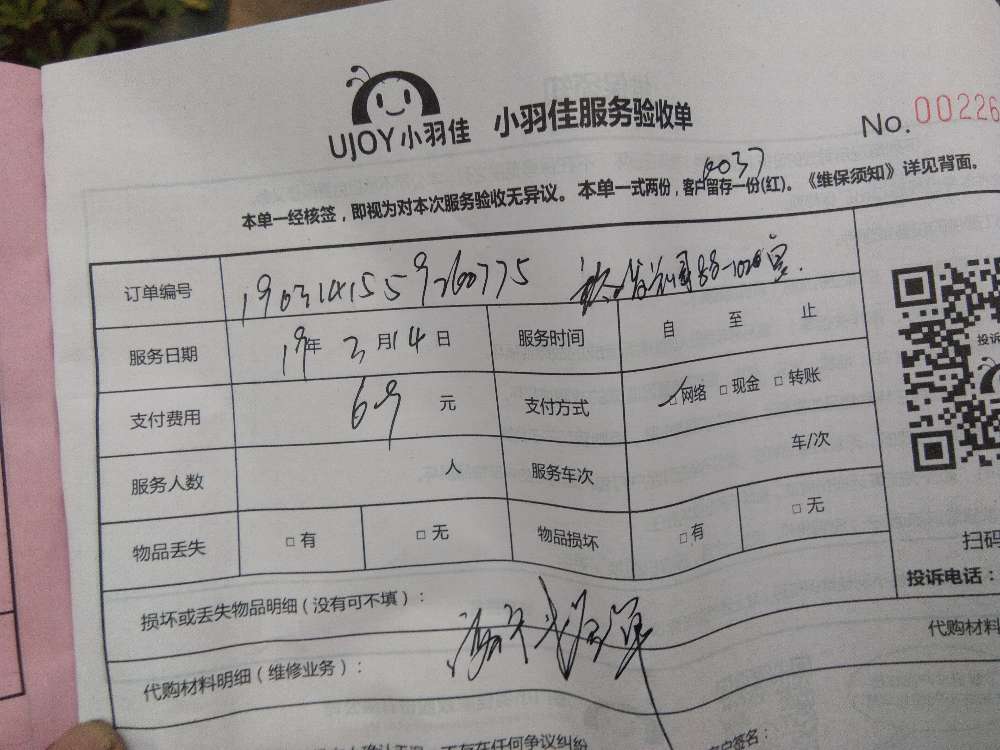 UJOY小羽佳 小羽佳服务验收单
No. 00226
本单一经核签，即视为对本次服务验收无异议。本单一式两份，客户留存一份(红)。《维保须知》详见背面。
订单编号 1903141559260775
服务日期 19年3月14日 服务时间 自 至 止
支付费用 69 元 支付方式 □网络 □现金 □转账
服务人数 人 服务车次 车/次
物品丢失 □有 □无 物品损坏 □有 □无
扫码
投诉电话：
损坏或丢失物品明细（没有可不填）：
代购材料
代购材料明细（维修业务）：
客户签名：